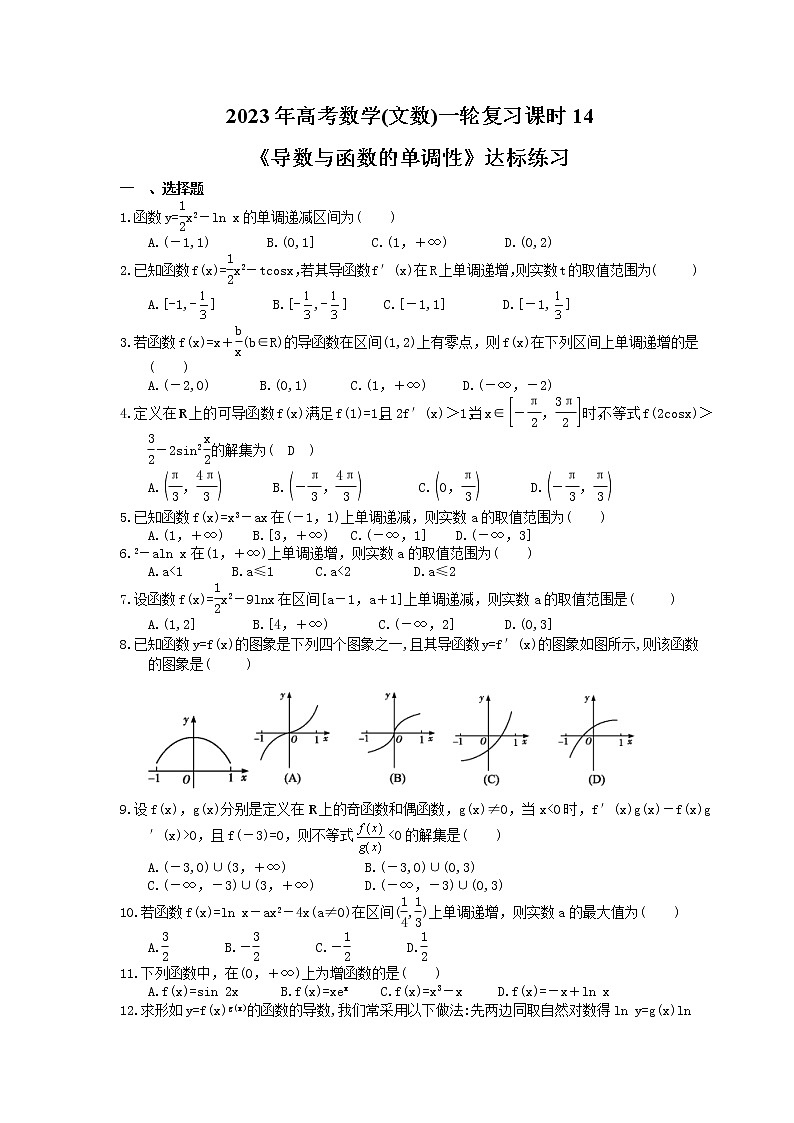 2023年高考数学(文数)一轮复习课时14
《导数与函数的单调性》达标练习
一 、选择题
1.函数y=\frac{1}{2}x2－ln x的单调递减区间为( )
A.(－1,1) B.(0,1] C.(1,＋∞) D.(0,2)
2.已知函数f(x)=\frac{1}{2}x2－tcosx,若其导函数f′(x)在R上单调递增,则实数t的取值范围为( )
A.[-1,-\frac{1}{3}] B.[-\frac{1}{3},-\frac{1}{3}] C.[－1,1] D.[－1,\frac{1}{3}]
3.若函数f(x)=x＋\frac{b}{x}(b∈R)的导函数在区间(1,2)上有零点，则f(x)在下列区间上单调递增的是
( )
A.(－2,0) B.(0,1) C.(1,＋∞) D.(－∞,－2)
4.定义在R上的可导函数f(x)满足f(1)=1且2f′(x)＞1,当x∈[－\frac{π}{2},\frac{3π}{2}]时,不等式f(2cosx)＞
\frac{3}{2}－2sin2\frac{x}{2}的解集为( D )
A.(\frac{π}{3},\frac{4π}{3}) B.(－\frac{π}{3},\frac{4π}{3}) C.(0,\frac{π}{3}) D.(－\frac{π}{3},\frac{π}{3})
5.已知函数f(x)=x3－ax在(－1，1)上单调递减，则实数a的取值范围为( )
A.(1,＋∞) B.[3,＋∞) C.(－∞,1] D.(－∞,3]
6.2－aln x在(1,＋∞)上单调递增，则实数a的取值范围为( )
A.a<1 B.a≤1 C.a<2 D.a≤2
7.设函数f(x)=\frac{1}{2}x2－9lnx在区间[a－1,a＋1]上单调递减，则实数a的取值范围是( )
A.(1,2] B.[4,＋∞) C.(－∞,2] D.(0,3]
8.已知函数y=f(x)的图象是下列四个图象之一,且其导函数y=f′(x)的图象如图所示,则该函数
的图象是( )
y -1 O 1 x
y -1 O 1 x (A)
y -1 O 1 x (B)
y -1 O 1 x (C)
y -1 O 1 x (D)
9.设f(x)，g(x)分别是定义在R上的奇函数和偶函数，g(x)≠0，当x<0时，f′(x)g(x)－f(x)g
′(x)>0，且f(－3)=0，则不等式\frac{f(x)}{g(x)}<0的解集是( )
A.(－3,0)∪(3,＋∞) B.(－3,0)∪(0,3)
C.(－∞,－3)∪(3,＋∞) D.(－∞,－3)∪(0,3)
10.若函数f(x)=ln x－ax2－4x(a≠0)在区间(\frac{1}{4},\frac{1}{3})上单调递增，则实数a的最大值为( )
A.\frac{3}{2} B.－\frac{3}{2} C.－\frac{1}{2} D.\frac{1}{2}
11.下列函数中，在(0,＋∞)上为增函数的是( )
A.f(x)=sin 2x B.f(x)=xex C.f(x)=x3－x D.f(x)=－x＋ln x
12.求形如y=f(x)g(x)的函数的导数,我们常采用以下做法:先两边同取自然对数得ln y=g(x)ln